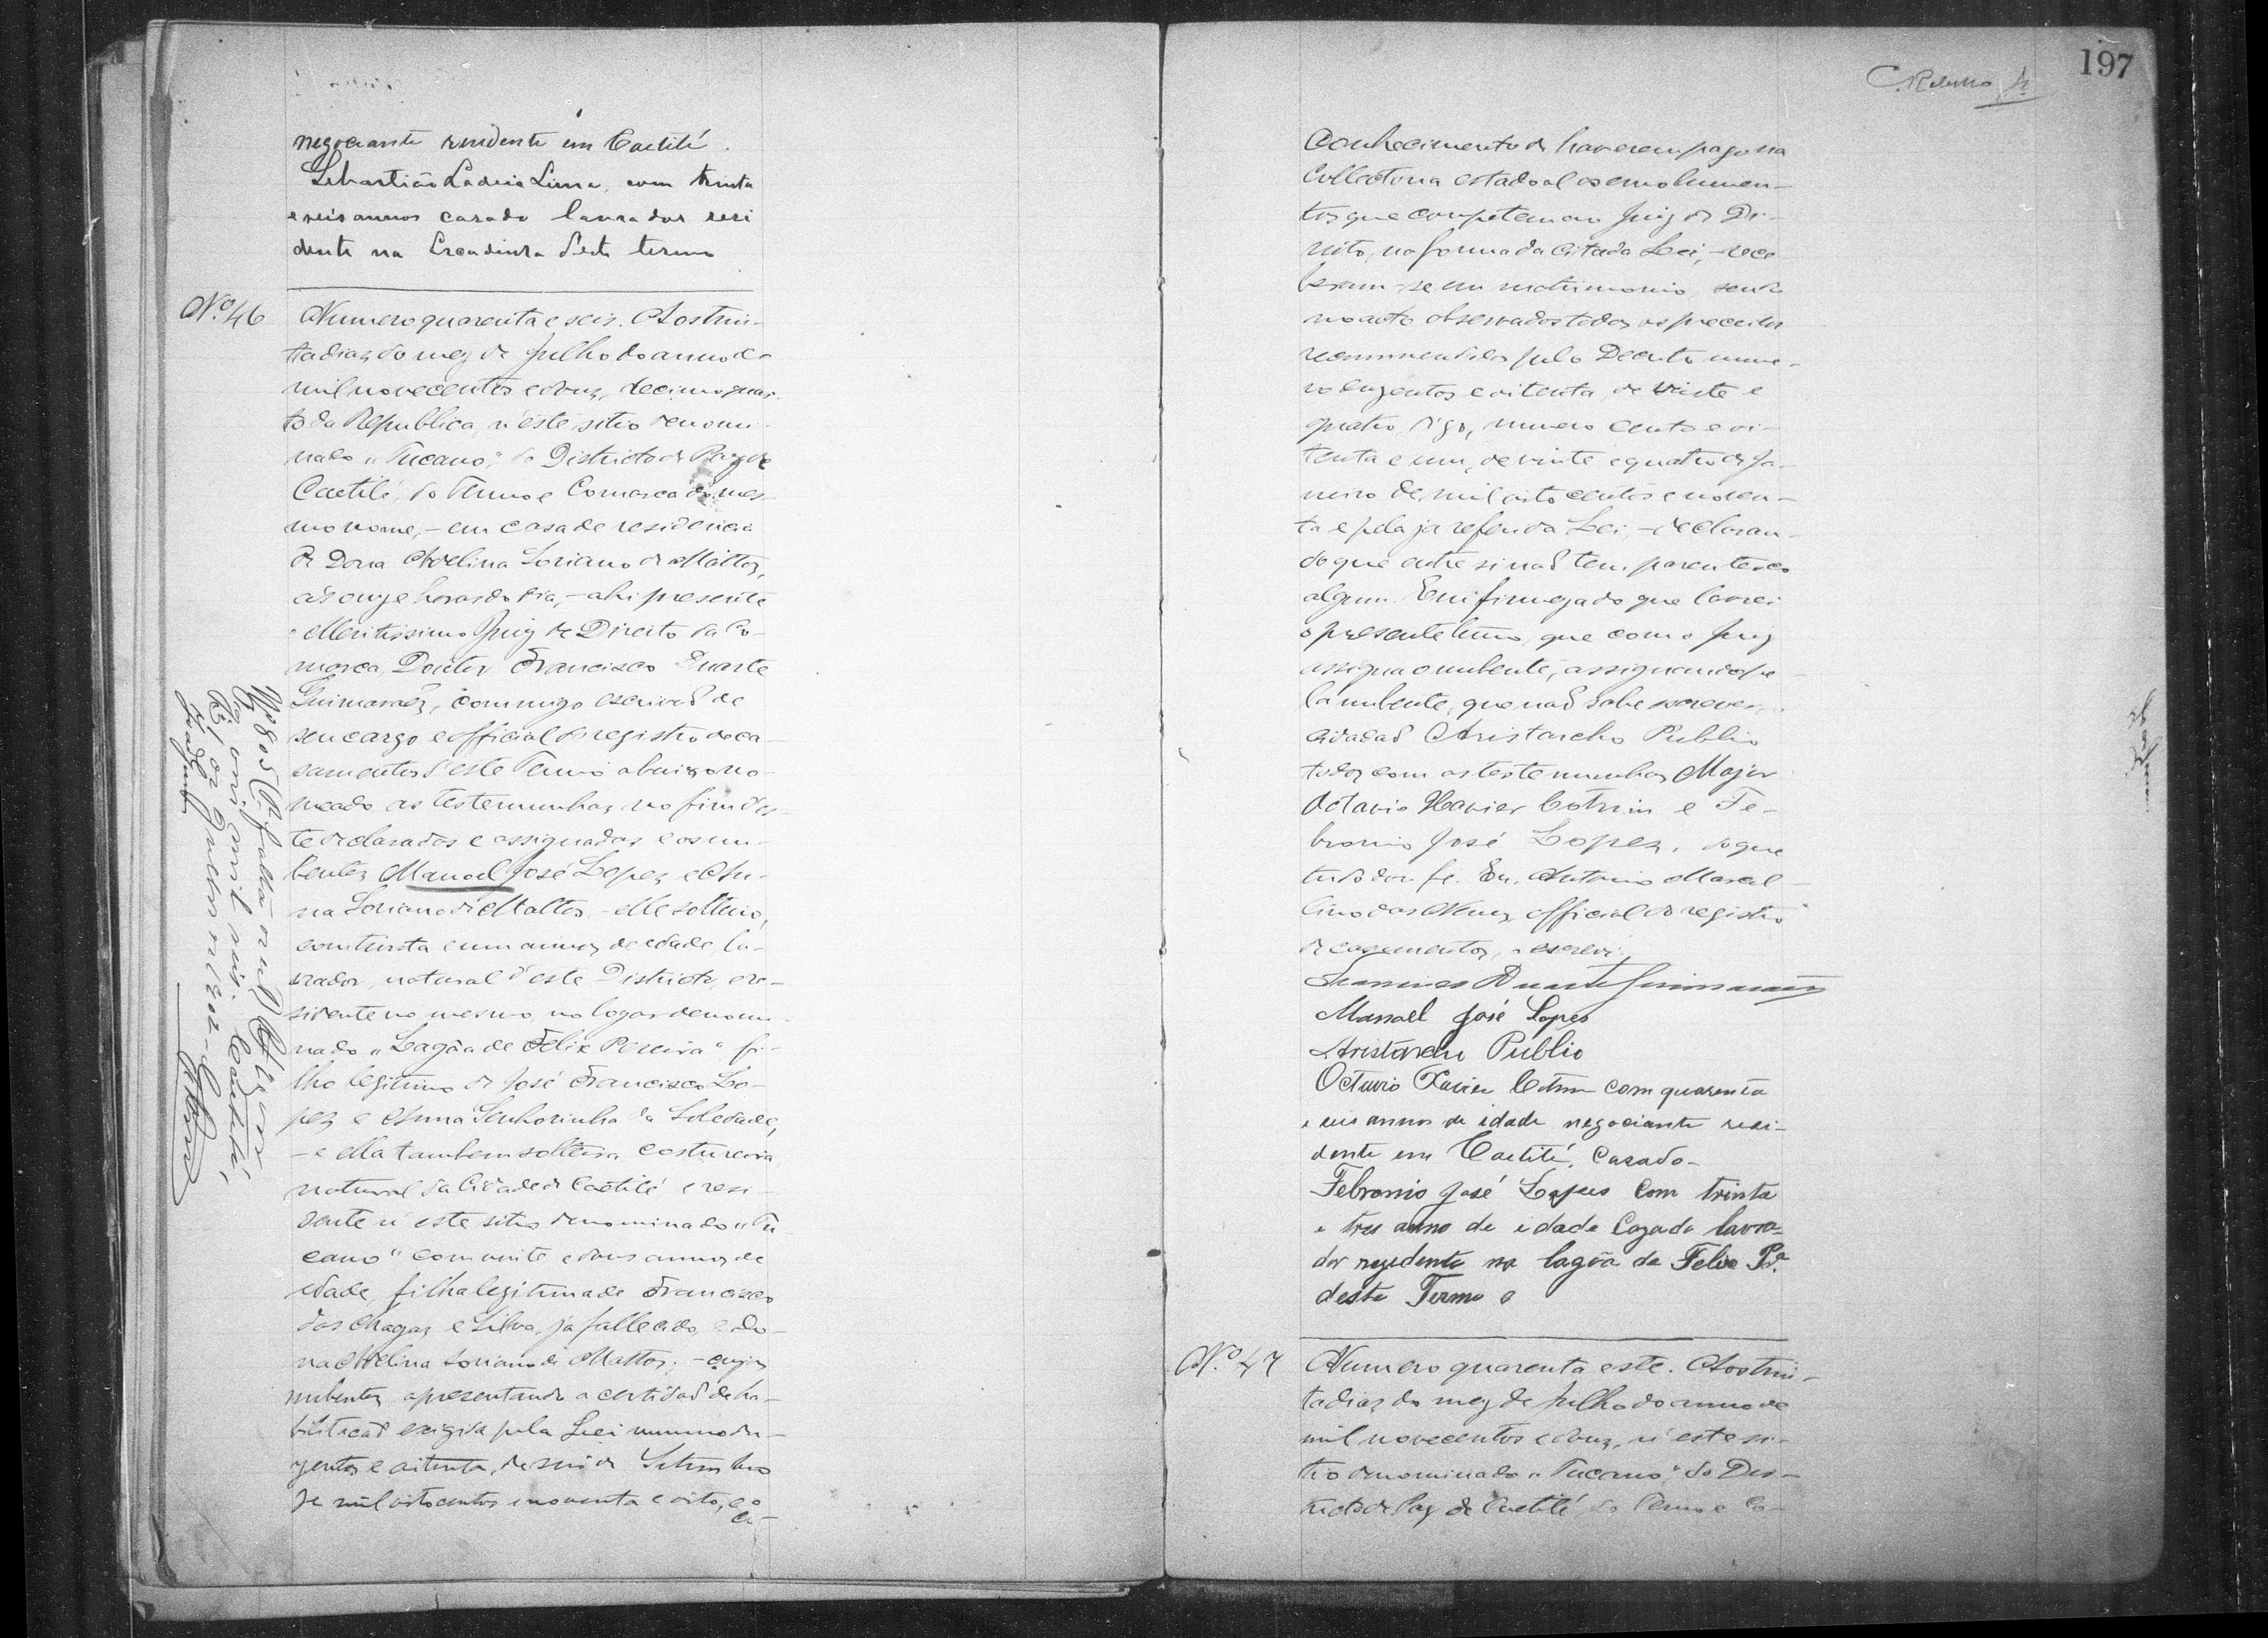 negociante residente em Caetité.
Sebastião Ladeia Lima, com trinta
e seis annos casado lavrador resi
dente na deste termo
Nº 46
Numero quarenta e seis. Aos trin-
ta dias do mez de Julho do anno de
mil novecentos e dous, decimo quar-
to da Republica, n'este sitio denomi-
nado "Tucano", do Districto de Paz de
Caetité, do Termo e Comarca do mes-
mo nome, - em casa de residencia
de Dona Avelina Soriano de Mattos,
ás onze horas do dia, - ahi presente
o Meritissimo Juiz de Direito da Co-
marca, Doutor Francisco Duarte
Guimarães, commigo escrivaõ de
seu cargo e official do registro de ca-
samentos d'este Termo abaixo no-
meado as testemunhas no fim des-
te declaradas e assignadas e os nu-
bentes Manoel José Lopes e An-
na Soriano de Mattos, - elle solteiro,
com trinta e um annos de edade la-
vrador, natural d'este Districto, e re-
sidente no mesmo, no logar denomi-
nado "Lagôa de Felix Pereira" fi-
lho legitimo de José Francisco Lo-
pes e Anna Senhorinha da Soledade,
- e ella tambem solteira costureira
natural da Cidade de Caetité e resi-
dente n'este sitio denominado "Tu-
cano" com vinte e dous annos de
edade, filha legitima de Francisco
das Chagas e Silva, já fallecido, e Do-
na Avelina Soriano de Mattos; - cujos
nubentes, apresentando a certidaõ de ha-
bilitacaõ exigida pela Lei numero du-
zentos e oitenta, de seis de Setembro
de mil oitocentos e noventa e oito, e o
co-
197
conhecimento de haverem pago na
Collectoria estadoal os emolumen-
tos que competem ao Juiz de Di-
reito, na forma da citada Lei, - rece
beram-se em matrimonio, sendo
no acto observados todos os preceitos
recommendados pelo Decreto nume-
ro duzentos e oitenta, de vinte e
quatro, digo, numero cento e oi-
tenta e um, de vinte e quatro de Ja-
neiro de mil oito centos e noven-
ta e pela já referida Lei, - declaran-
do que entre si naõ tem parentesco
algum. Em firmeza do que lavrei
o presente termo, que com o Juiz
assigna o nubente, assignando pe
la nubente, que naõ sabe escrever, o
cidadaõ Aristarcho Publio
todos com as testemunhas Major
Octavio Xavier Cotrim e Fe-
bronio José Lopes, do que
tudo dou fé. Eu, Antonio Marcel-
lino das Neves, official do registro
de casamentos, o escrevi.
Francisco Duarte Guimarães
Manoel José Lopes
Aristarcho Publio
Octavio Xavier Cotrim com quarenta
e seis annos de idade negociante resi-
dente em Caetité, Casado-
Febronio José Lopes com trinta
e tres anno de idade Cazado lavra-
dor rezidente na lagôa de Felix Pª
deste Termo e
Nº 47
Numero quarenta e sete. Aos trin-
ta dias do mez de Julho do anno de
mil novecentos e dous, n'este si-
tio denominado "Tucano", do Dis-
tricto de Paz de Caetité do Termo e Co-